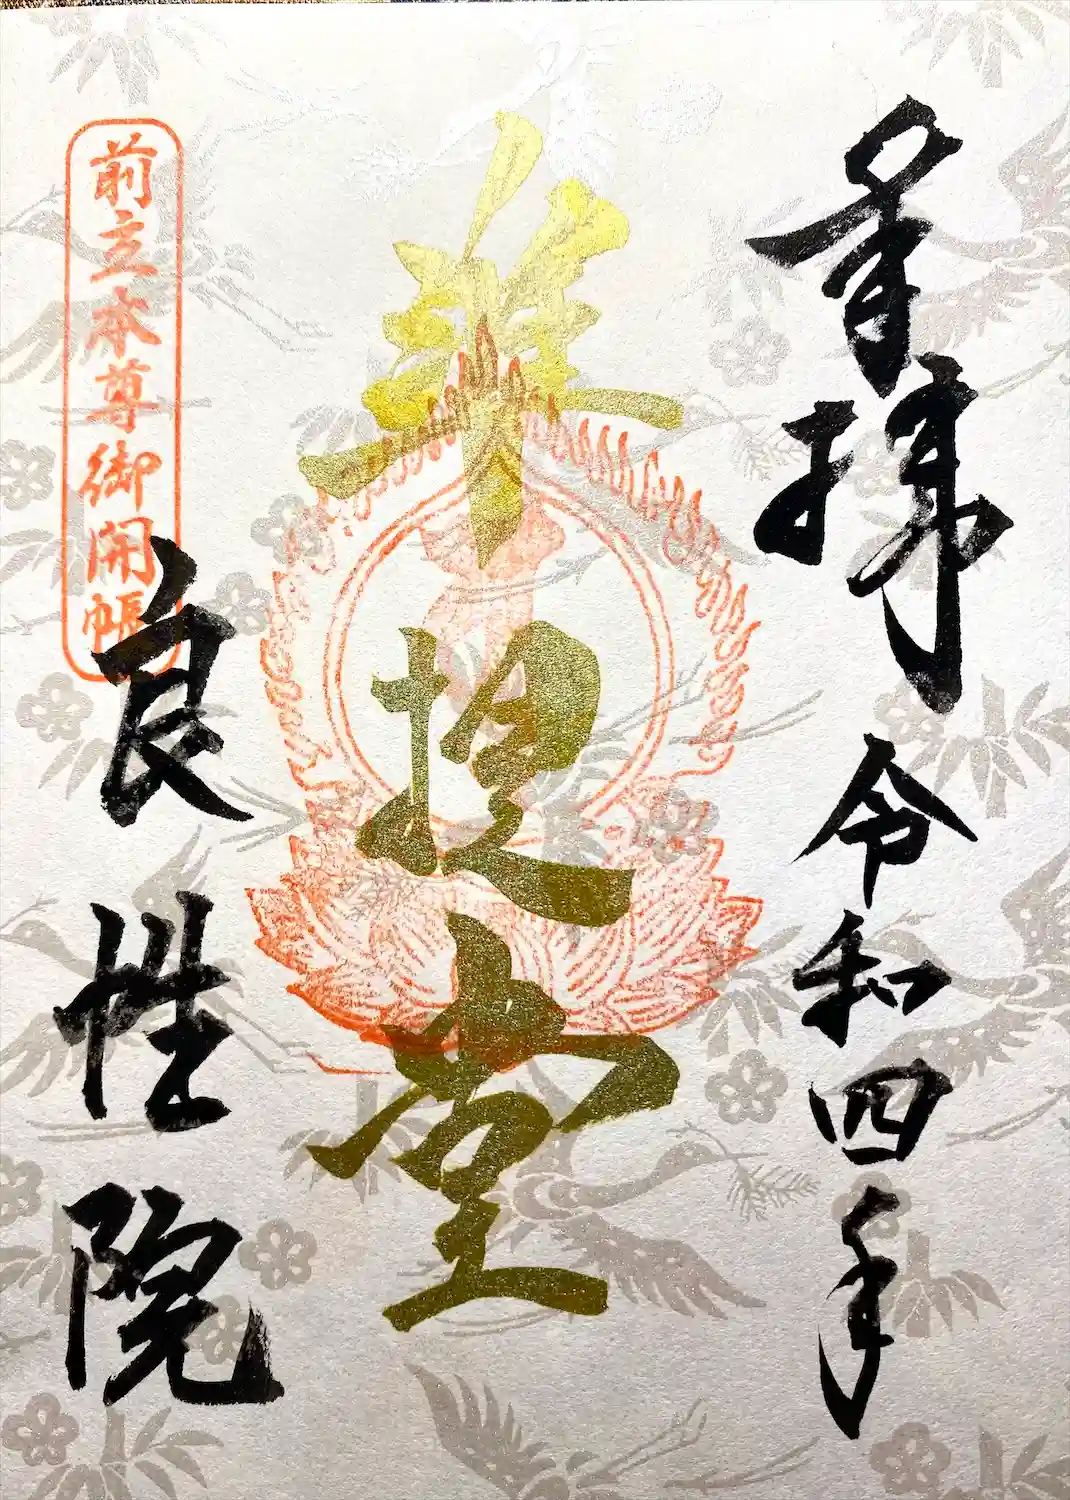 奉拝 令和四年
准提堂
前立本尊御開帳
良性院